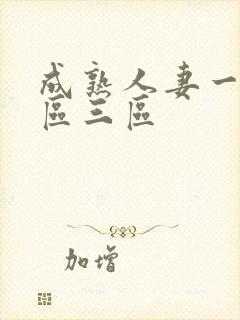 成熟人妻一
區三區
加增